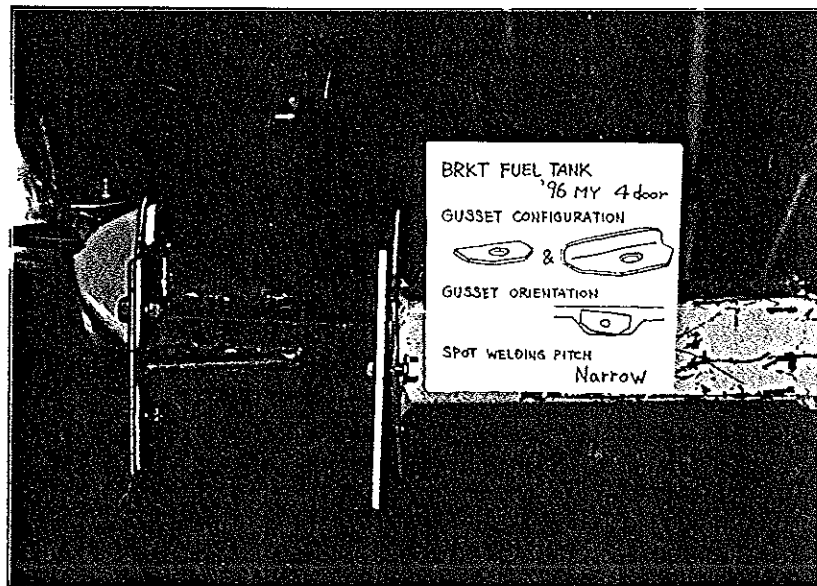 BRKT FUEL TANK
'96 MY 4 door
GUSSET CONFIGURATION
&
GUSSET ORIENTATION
SPOT WELDING PITCH
Narrow